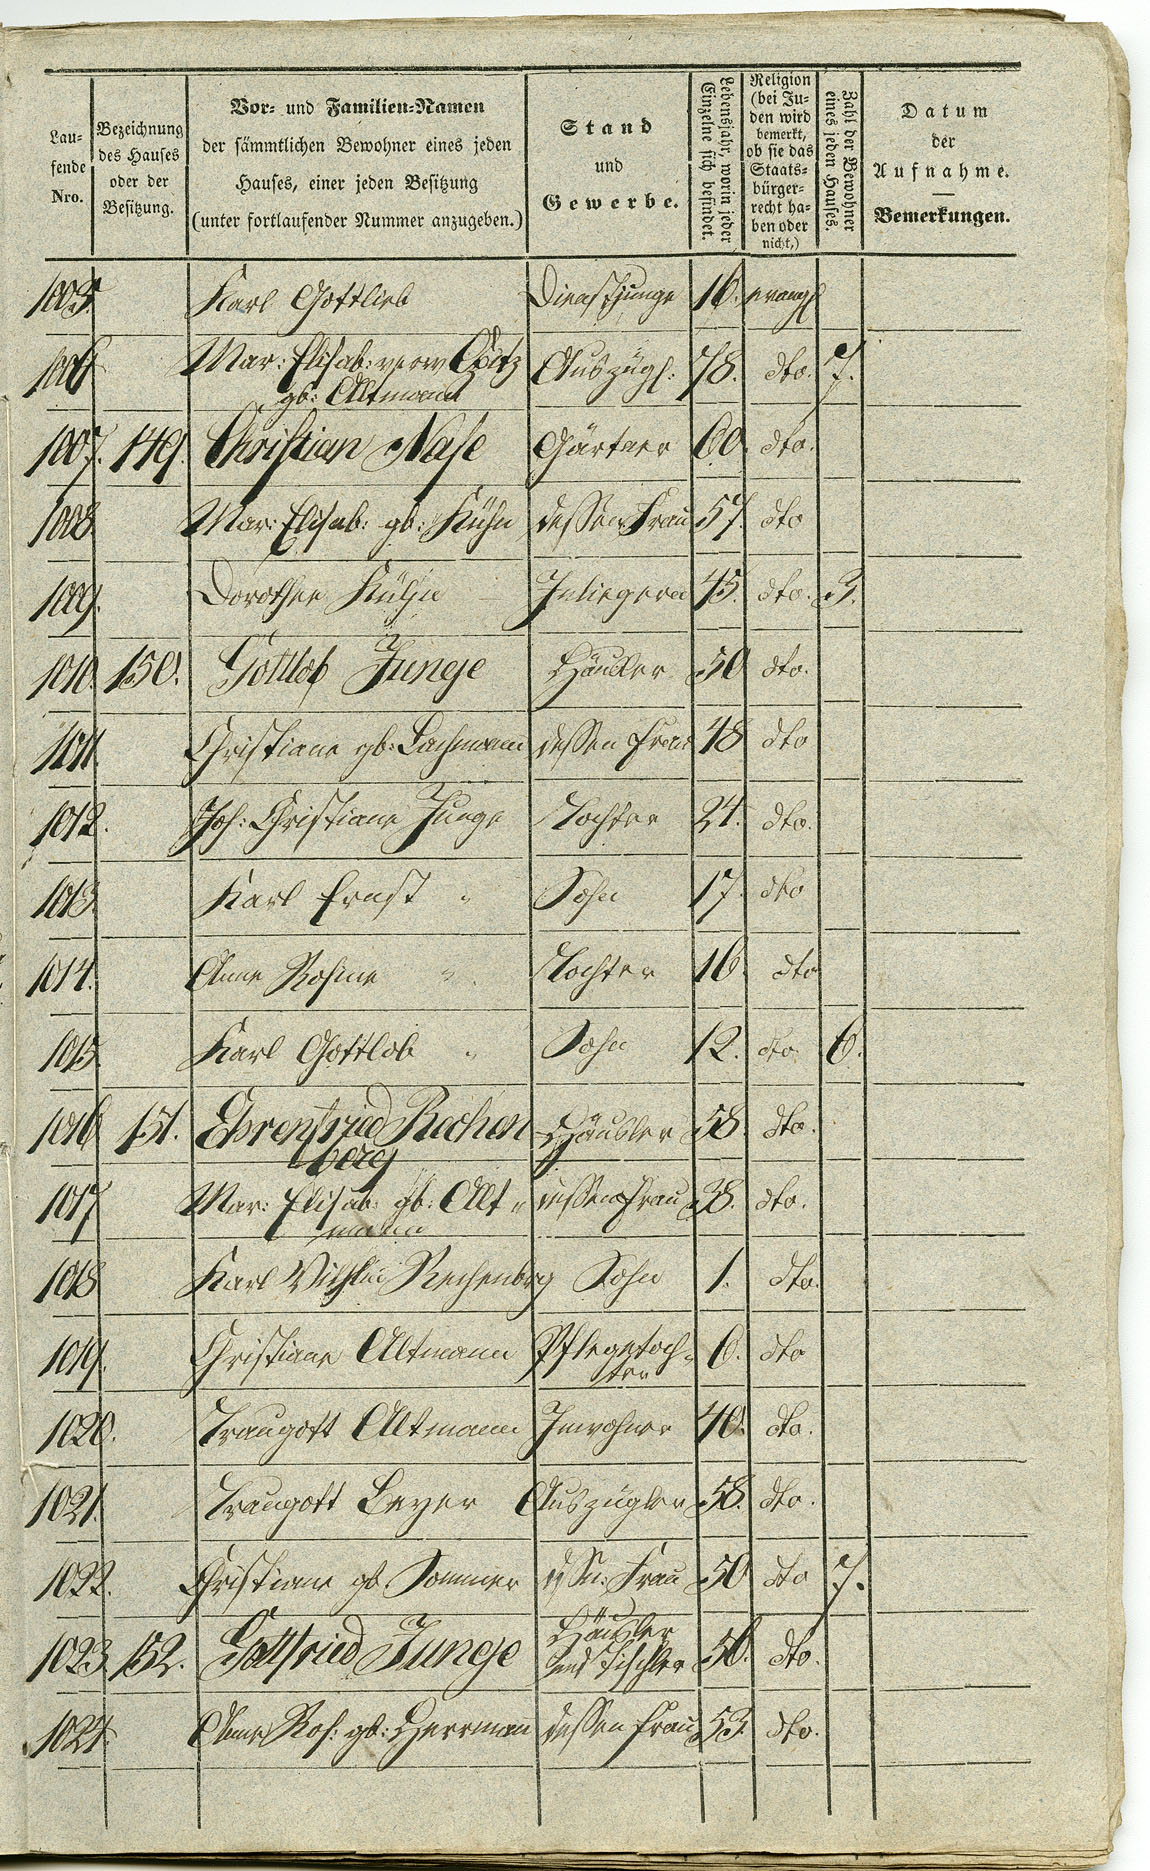 Lau-
fende
Nro.
Bezeichnung
des Hauses
oder der
Besitzung.
Vor- und Familien-Namen
der sämmtlichen Bewohner eines jeden
Hauses, einer jeden Besitzung
(unter fortlaufender Nummer anzugeben.)
Stand
und
Gewerbe.
Lebensjahr, worin jeder
Einzelne sich befindet.
Religion
(bei Ju-
den wird
bemerkt,
ob sie das
Staats-
bürger-
recht ha-
ben oder
nicht,)
Zahl der Bewohner
eines jeden Hauses.
Datum
der
Aufnahme.
Bemerkungen.
1005. Karl Gottlieb Dienstjunge 16. evangl
1006 Mar: Elisab: verw Opitz Auszügl: 78. dto. 7.
gb: Altmann
1007. 149. Christian Nase Gärtner 60. dto.
1008. Mar: Elisab: gb: Kühn dessen Frau 57. dto
1009. Dorothee Kühn Inliegerin 45. dto. 3.
1010. 150. Gottlob Junge Häusler 50 dto.
1011. Christiane gb: Lachmann dessen Frau 48 dto
1012. Joh: Christiane Junge Tochter 24. dto.
1013. Karl Ernst " Sohn 17. dto
1014. Anne Rosine " Tochter 16. dto
1015. Karl Gottlob " Sohn 12. dto. 6.
1016 151. Ehrenfried Rechen Häusler 58. dto.
berg
1017 Mar: Elisab: gb: Alt " dessen Frau 38. dto.
mann
1018 Karl Wilhlm Rechenbrg Sohn 1. dto.
1019. Christiane Altmann Pflegetoch- 6. dto
ter
1020. Traugott Altmann Inwohner 40. dto.
1021. Traugott Beyer Auszügler 58. dto.
1022. Christiane gb. Sommer dssn: Frau 50 dto 7.
1023. 152. Gottfried Junge Häusler
und Tischler 56. dto.
1024. Anne Ros: gb: Herrmann dessen Frau 53 dto.